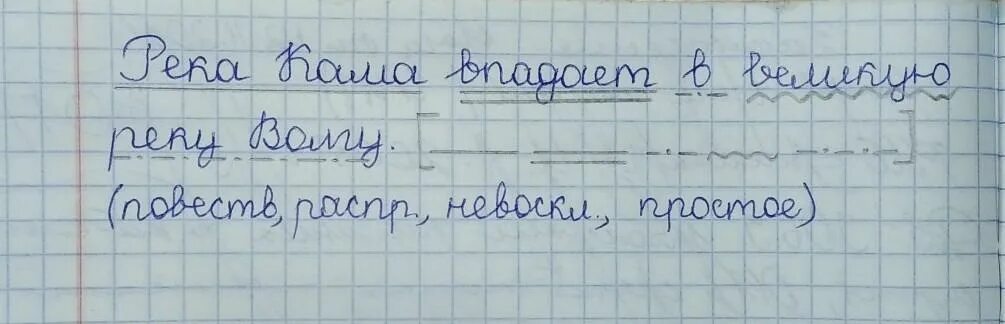 Река Кама впадает в великую
реку Волгу. [ ]
(повеств, распр., невоскл., простое)